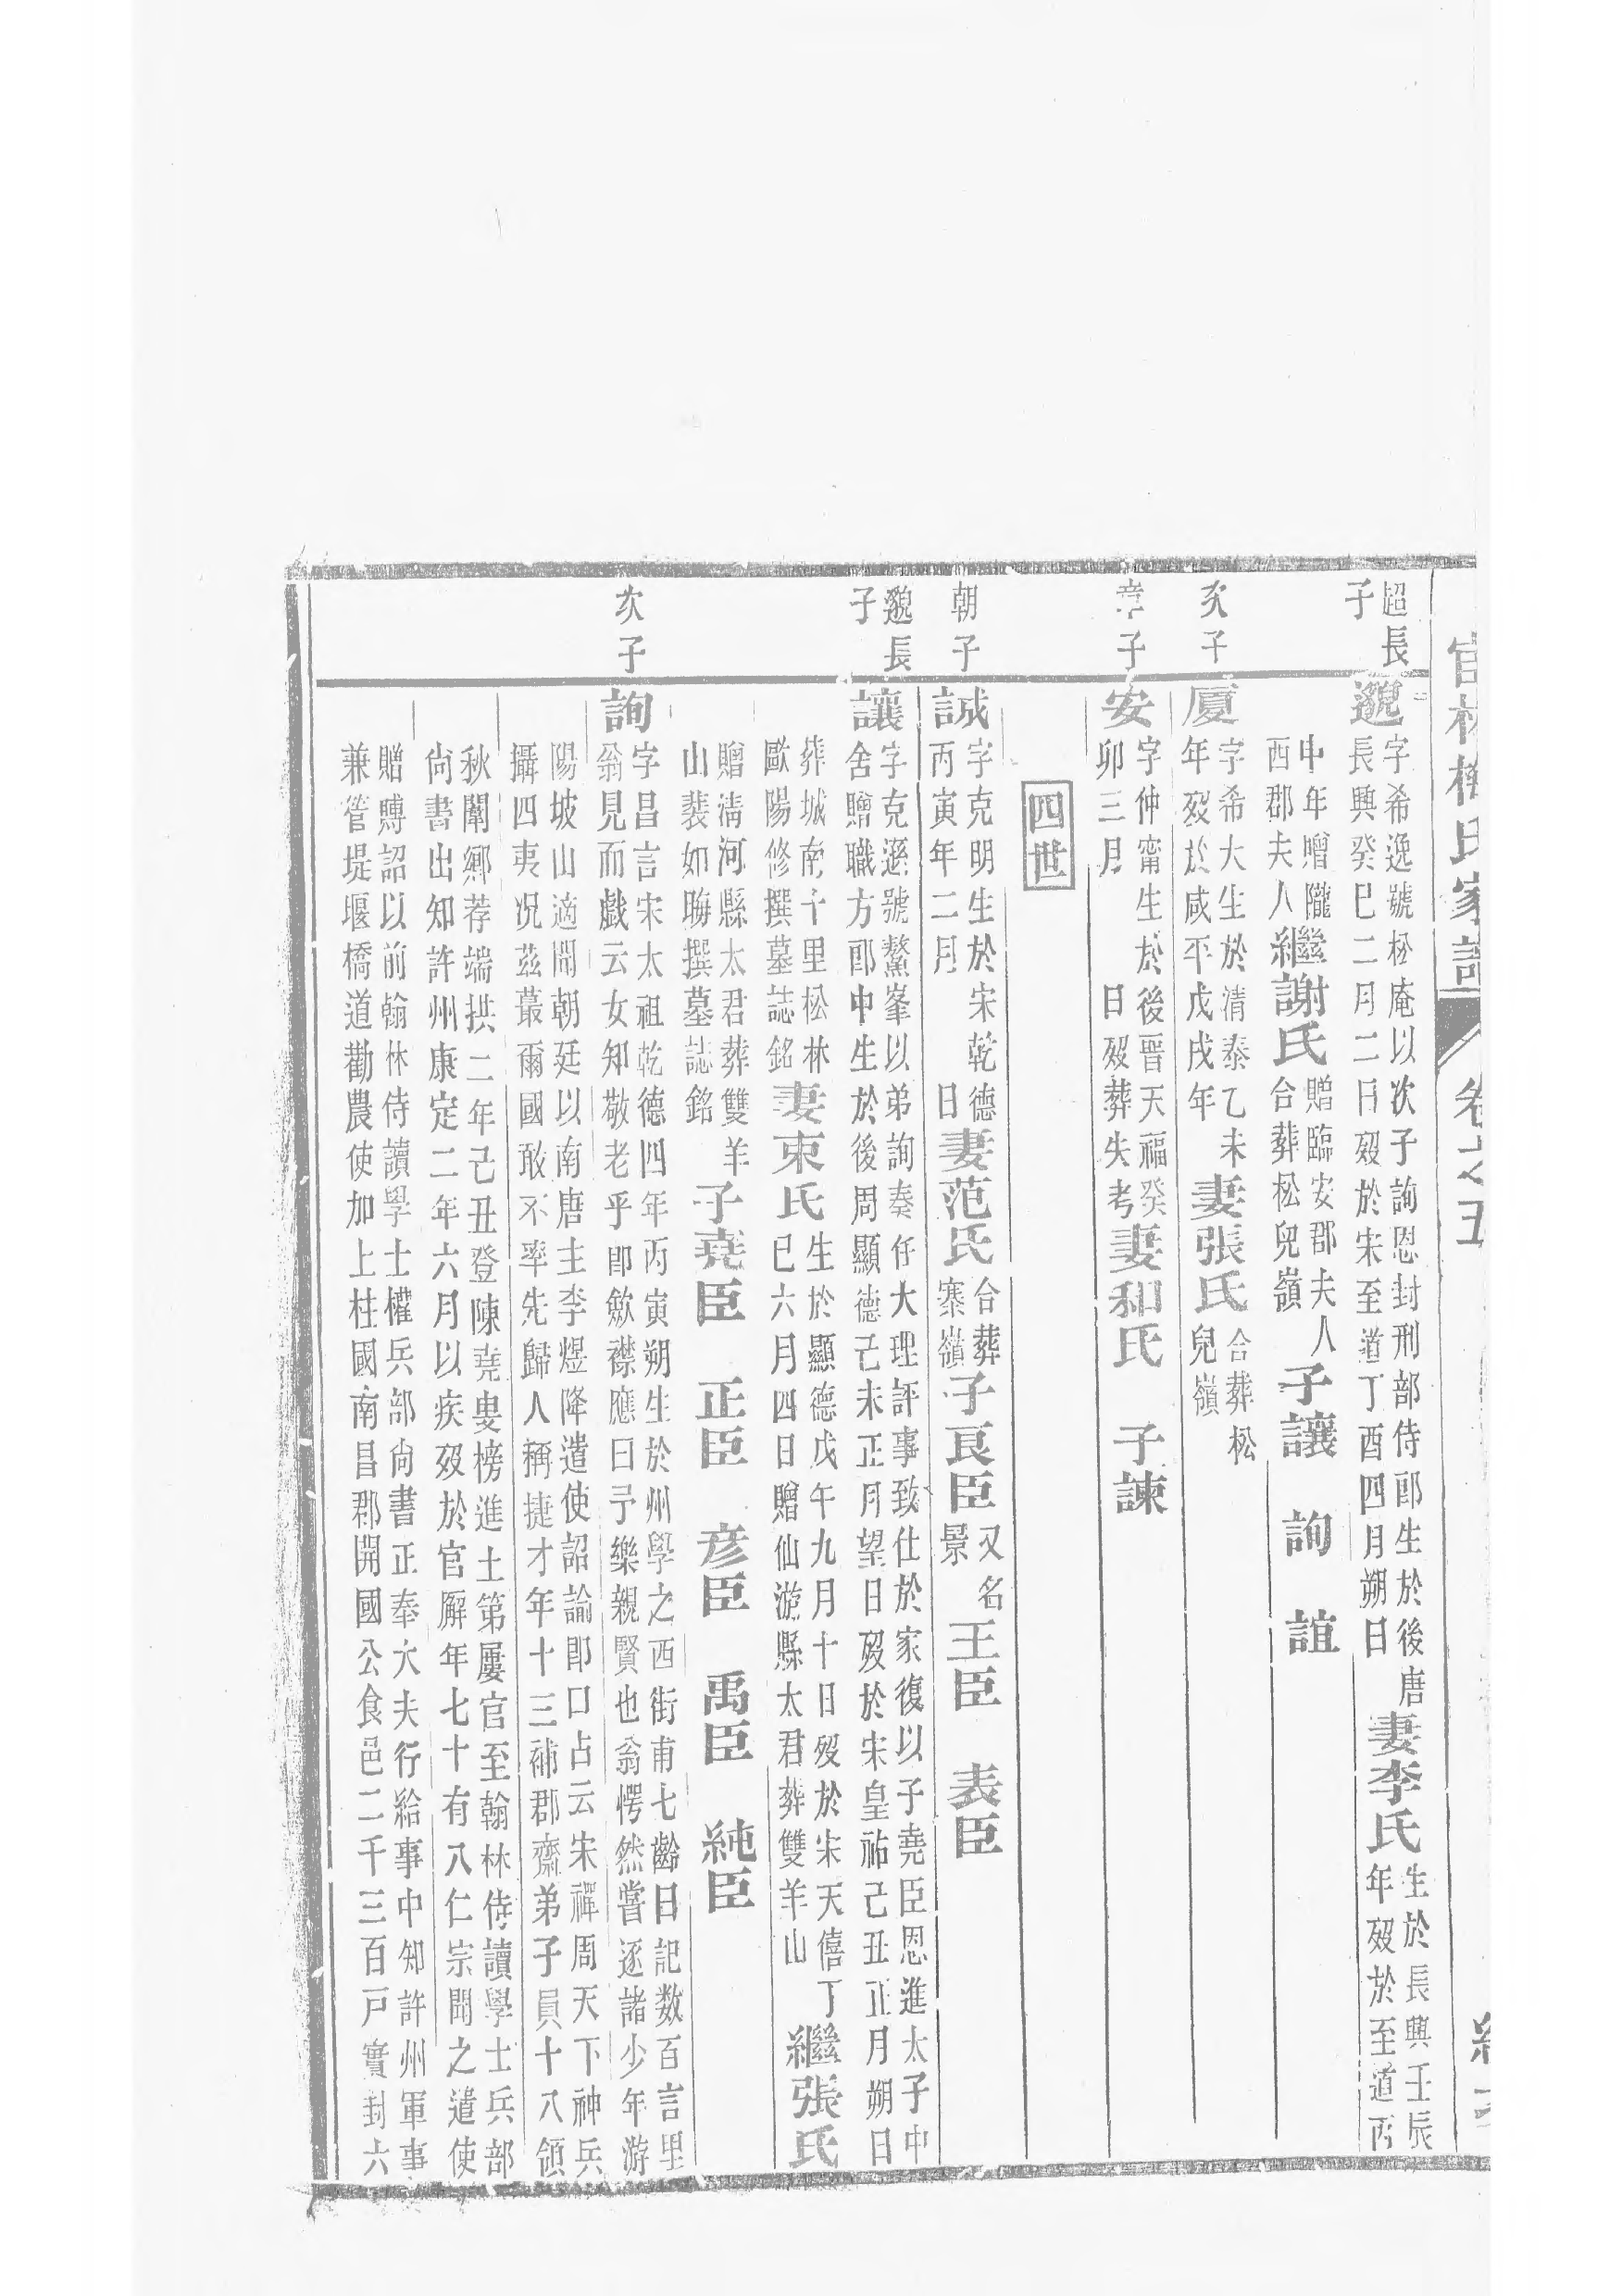 官林梅氏家譜 卷之五
超長子
邈 字希逸號松庵以次子詢恩封刑部侍郎生於後唐
長興癸巳二月二日歿於宋至道丁酉四月朔日
妻李氏 生於長興壬辰
年歿於至道丙
申年贈隴
西郡夫人
繼謝氏 贈臨安郡夫人
合葬松兒嶺
子讓 詢 誼
次子
厦 字希大生於清泰乙未
年歿於咸平戊戌年
妻張氏 合葬松
兒嶺
章子
安 字仲甯生於後晉天福癸
卯三月 日歿葬失考
妻和氏 子諫
四世
朝子
誠 字克明生於宋乾德
丙寅年二月 日
妻范氏 合葬
寨嶺
子良臣 又名
景
王臣 表臣
邈長子
讓 字克遜號鰲峯以弟詢奏仕大理評事致仕於家復以子堯臣恩進太子中
舍贈職方郎中生於後周顯德己未正月望日歿於宋皇祐己丑正月朔日
葬城南十里松林
歐陽修撰墓誌銘
妻束氏 生於顯德戊午九月十日歿於宋天僖丁
巳六月四日贈仙游縣太君葬雙羊山
繼張氏
贈清河縣太君葬雙羊
山裴如晦撰墓誌銘
子堯臣 正臣 彦臣 禹臣 純臣
次子
詢 字昌言宋太祖乾德四年丙寅朔生於州學之西街甫七齡日記数百言里
翁見而戯云女知敬老乎卽歛襟應曰予樂親賢也翁愕然嘗逐諸少年游
陽坡山適聞朝廷以南唐主李煜降遣使詔論卽口占云宋禪周天下神兵
攝四夷况茲蕞爾國敢不率先歸人稱捷才年十三補郡齋弟子員十八領
秋闈鄉荐端拱二年己丑登陳堯叟榜進士第屢官至翰林侍讀學士兵部
尙書出知許州康定二年六月以疾歿於官廨年七十有八仁宗聞之遣使
贈賻詔以前翰林侍讀學士權兵部尙書正奉大夫行給事中知許州軍事
兼管堤堰橋道勸農使加上柱國南昌郡開國公食邑二千三百戸實封六